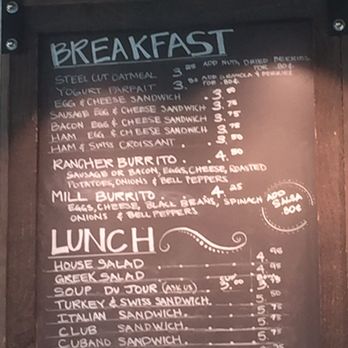 BREAKFAST
STEEL CUT OATMEAL 3.25 ADD NUTS, DRIED BERRIES FOR .80¢
YOGURT PARFAIT 3.50 ADD GRANOLA & BERRIES FOR .80¢
EGG & CHEESE SANDWICH . 3.50
SAUSAGE EGG & CHEESE SANDWICH 3.75
BACON EGG & CHEESE SANDWICH . 3.75
HAM EGG & CHEESE SANDWICH 3.75
HAM & SWISS CROISSANT . 3.50
RANCHER BURRITO . . 4.50
SAUSAGE OR BACON, EGGS, CHEESE, ROASTED
POTATOES, ONIONS & BELL PEPPERS
MILL BURRITO 4.25
EGGS, CHEESE, BLACK BEANS, SPINACH
ONIONS & BELL PEPPERS
ADD
SALSA
.80¢
LUNCH
HOUSE SALAD 4.95
GREEK SALAD 4.95
SOUP DU JOUR (ASK US) 3.00
TURKEY & SWISS SANDWICH 5.50
ITALIAN SANDWICH 5.50
CLUB SANDWICH
CUBANO SANDWICH